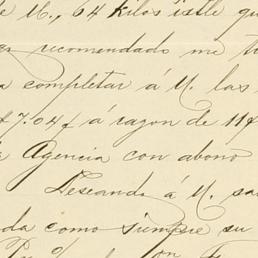 de U., 64 kilos istle qu
recomendado me tr
completar á U. las
$7.04¢ á razon de 11¢
Agencia con abono
Deseando á U. sa
da como siempre su